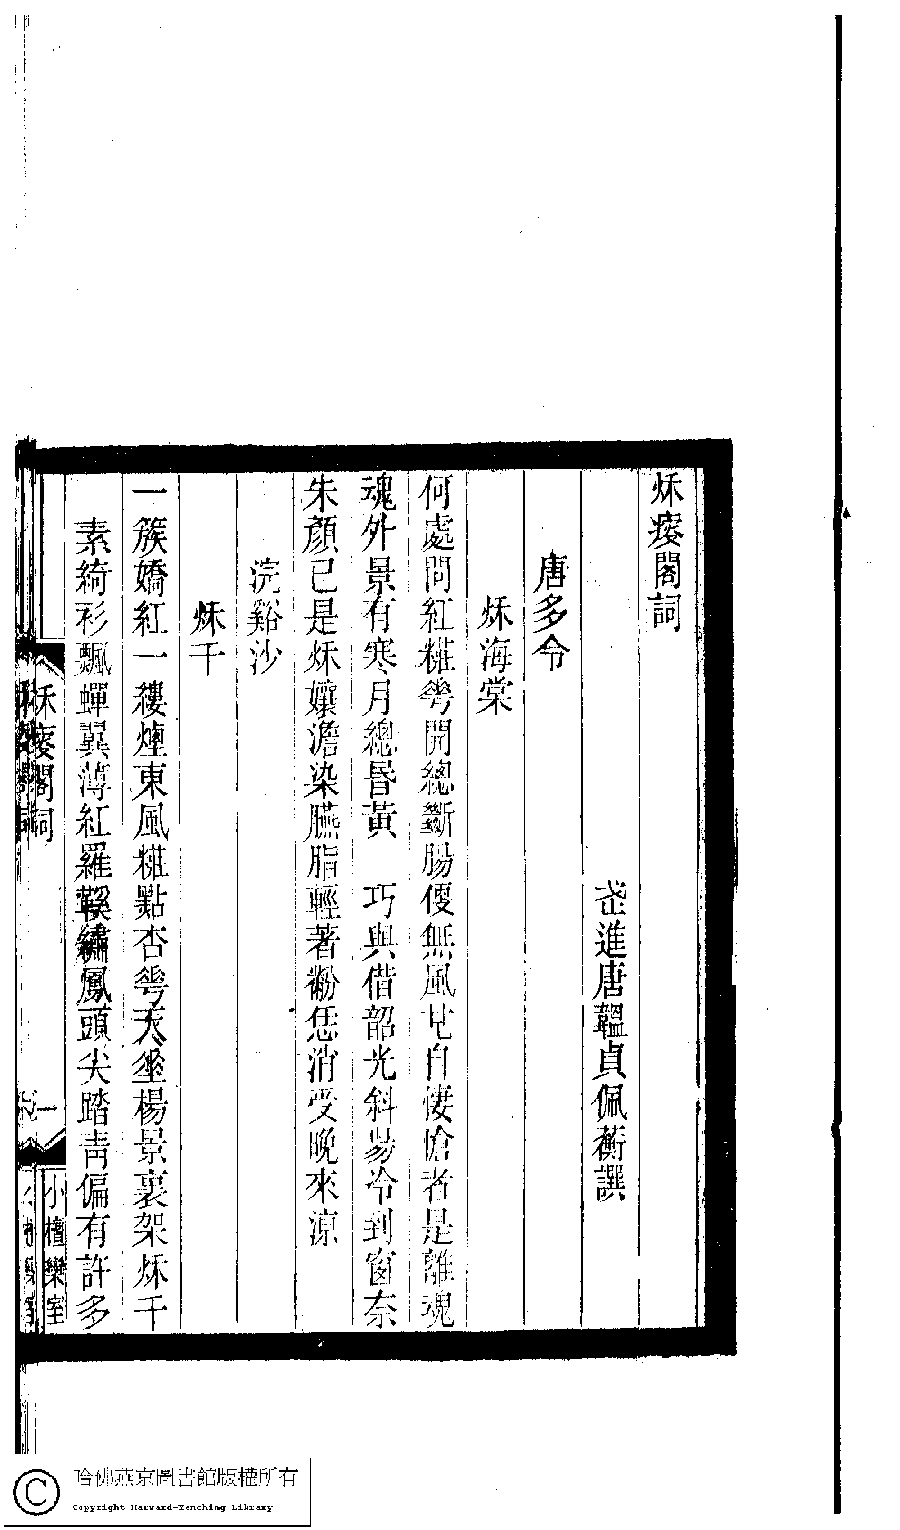 秌瘦閣詞
武進唐韞貞佩蘅譔
唐多令
秌海棠
何處問紅糚夢開總斷腸便無風也自悽愴者是離魂
魂外景有寒月總昏黃　巧與借韶光斜昜冷到窗柰
朱顏已是秌孃澹染臙脂輕著粉恁消受晚來涼
浣谿沙
秌千
一簇嬌紅一縷煙東風糚點杏雩天垒楊景裏架秌千
素綺衫飄蟬翼薄紅羅鞵繡鳳頭尖踏靑偏有許多
秌瘦閣詞
一
小檀欒室
哈佛燕京圖書館版權所有
Copyright Harvard-Yenching Library